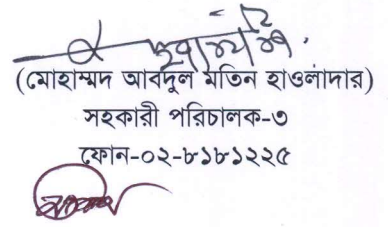 (মোহাম্মদ আবদুল মতিন হাওলাদার)
সহকারী পরিচালক-৩
ফোন-০২-৮১৮১২২৫